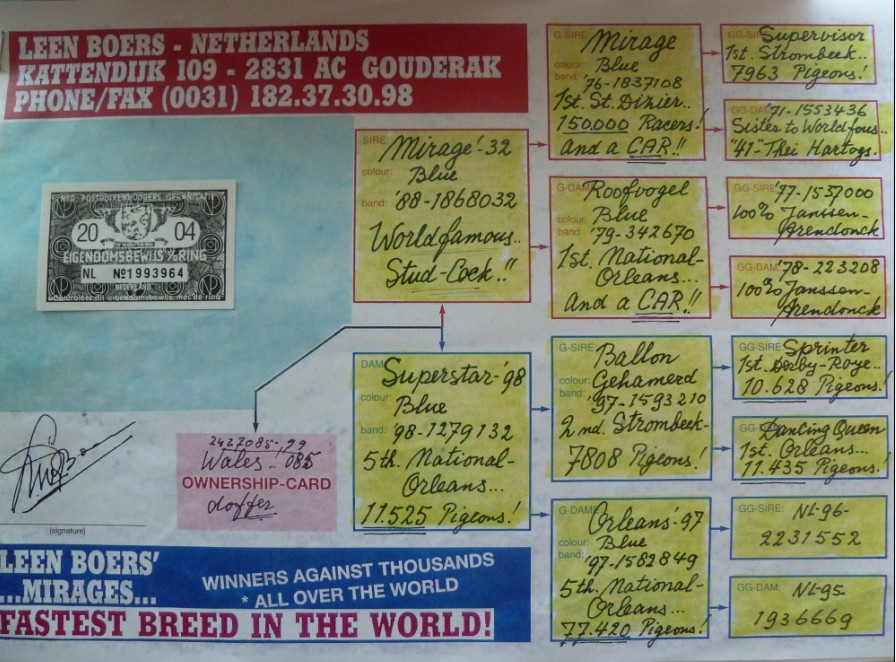 LEEN BOERS - NETHERLANDS
KATTENDIJK 109 - 2831 AC GOUDERAK
PHONE/FAX (0031) 182.37.30.98
NED. POSTDUIVENHOUDERS ORGANISATIE
20 04
EIGENDOMSBEWIJS v/d RING
NL No 1993964
NEDERLAND
Controleer dit eigendomsbewijs met de ring
(signature)
2427085-'99
Wales.. 085
OWNERSHIP-CARD
doffer
LEEN BOERS'
...MIRAGES...
WINNERS AGAINST THOUSANDS
* ALL OVER THE WORLD
FASTEST BREED IN THE WORLD!
SIRE:
Mirage'-32
colour:
Blue
band: '88-1868032
Worldfamous..
Stud-Cock.!!
DAM:
Superstar-'98
colour:
Blue
band: '98-1279132
5th. National-
Orleans...
11.525 Pigeons.!
G-SIRE:
Mirage
colour: Blue
band: '76-1837108
1st. St. Dizier..
150.000 Racers!
And a CAR.!!
G-DAM:
Roofvogel
colour: Blue
band: '79-342670
1st. National-
Orleans...
And a CAR.!!
G-SIRE:
Ballon
colour: Gehamerd
band: '97-1593210
2nd. Strombeek-
7808 Pigeons.!
G-DAM:
Orleans'-97
colour: Blue
band: '97-1582849
5th. National-
Orleans...
77.420 Pigeons.!
GG-SIRE: Supervisor
1st. Strombeek..
7963 Pigeons.!
GG-DAM: '71-1553436
Sister to Worldfous..
"41"-Thei Hartogs.
GG-SIRE: '77-1537000
100% Janssen-
Arendonck
GG-DAM: '78-223208
100% Janssen-
Arendonck
GG-SIRE: Sprinter
1st. Derby-Roye..
10.628 Pigeons.!
GG-DAM: Dancing Queen
1st. Orleans...
11.435 Pigeons.!
GG-SIRE: NL-96-
2231552
GG-DAM: NL-95-
1936669